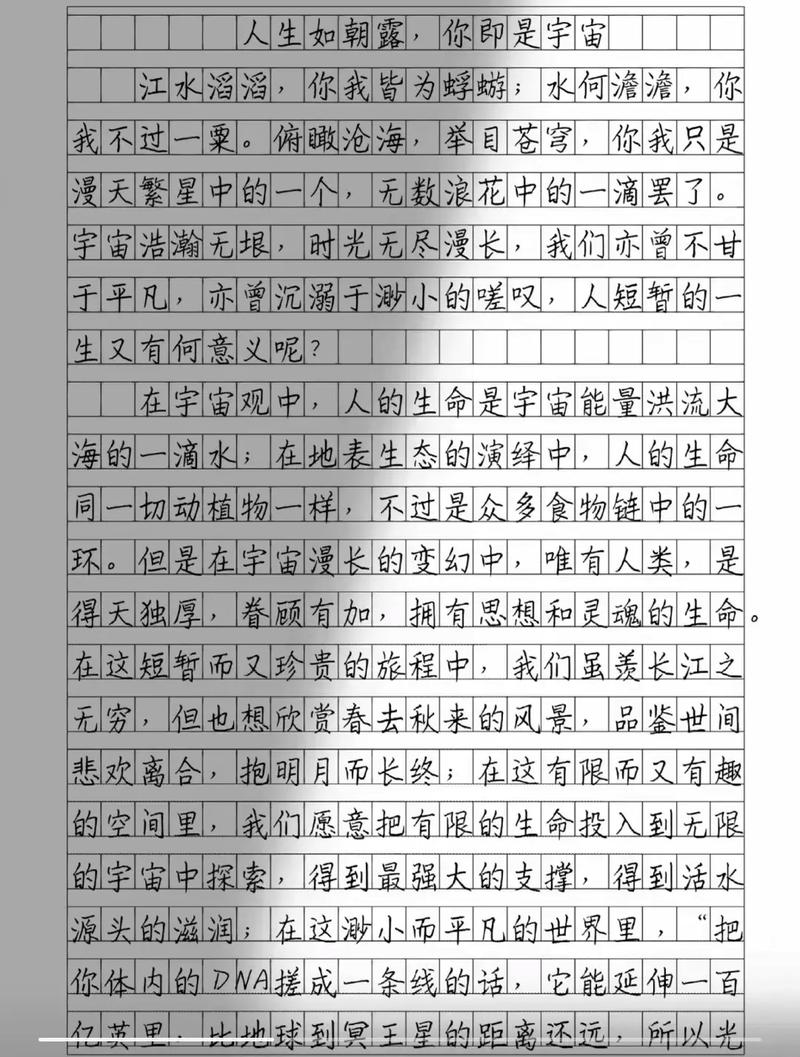 人生如朝露，你即是宇宙
江水滔滔，你我皆为蜉蝣；水何澹澹，你
我不过一粟。俯瞰沧海，举目苍穹，你我只是
漫天繁星中的一个，无数浪花中的一滴罢了。
宇宙浩瀚无垠，时光无尽漫长，我们亦曾不甘
于平凡，亦曾沉溺于渺小的嗟叹，人短暂的一
生又有何意义呢？
在宇宙观中，人的生命是宇宙能量洪流大
海的一滴水；在地表生态的演绎中，人的生命
同一切动植物一样，不过是众多食物链中的一
环。但是在宇宙漫长的变幻中，唯有人类，是
得天独厚，眷顾有加，拥有思想和灵魂的生命。
在这短暂而又珍贵的旅程中，我们虽羡长江之
无穷，但也想欣赏春去秋来的风景，品鉴世间
悲欢离合，抱明月而长终；在这有限而又有趣
的空间里，我们愿意把有限的生命投入到无限
的宇宙中探索，得到最强大的支撑，得到活水
源头的滋润；在这渺小而平凡的世界里，“把
你体内的DNA搓成一条线的话，它能延伸一百
亿英里，比地球到冥王星的距离还远，所以光